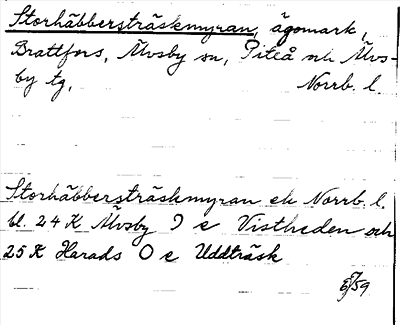 Storhäbbersträskmyran, ägomark,
Brattfors, Älvsby sn, Piteå och Älvs-
by tg, Norrb. l.
Storhäbbersträskmyran ek Norrb. l.
bl. 24 K Älvsby J e Vistheden och
25 K Harads O e Uddträsk
59